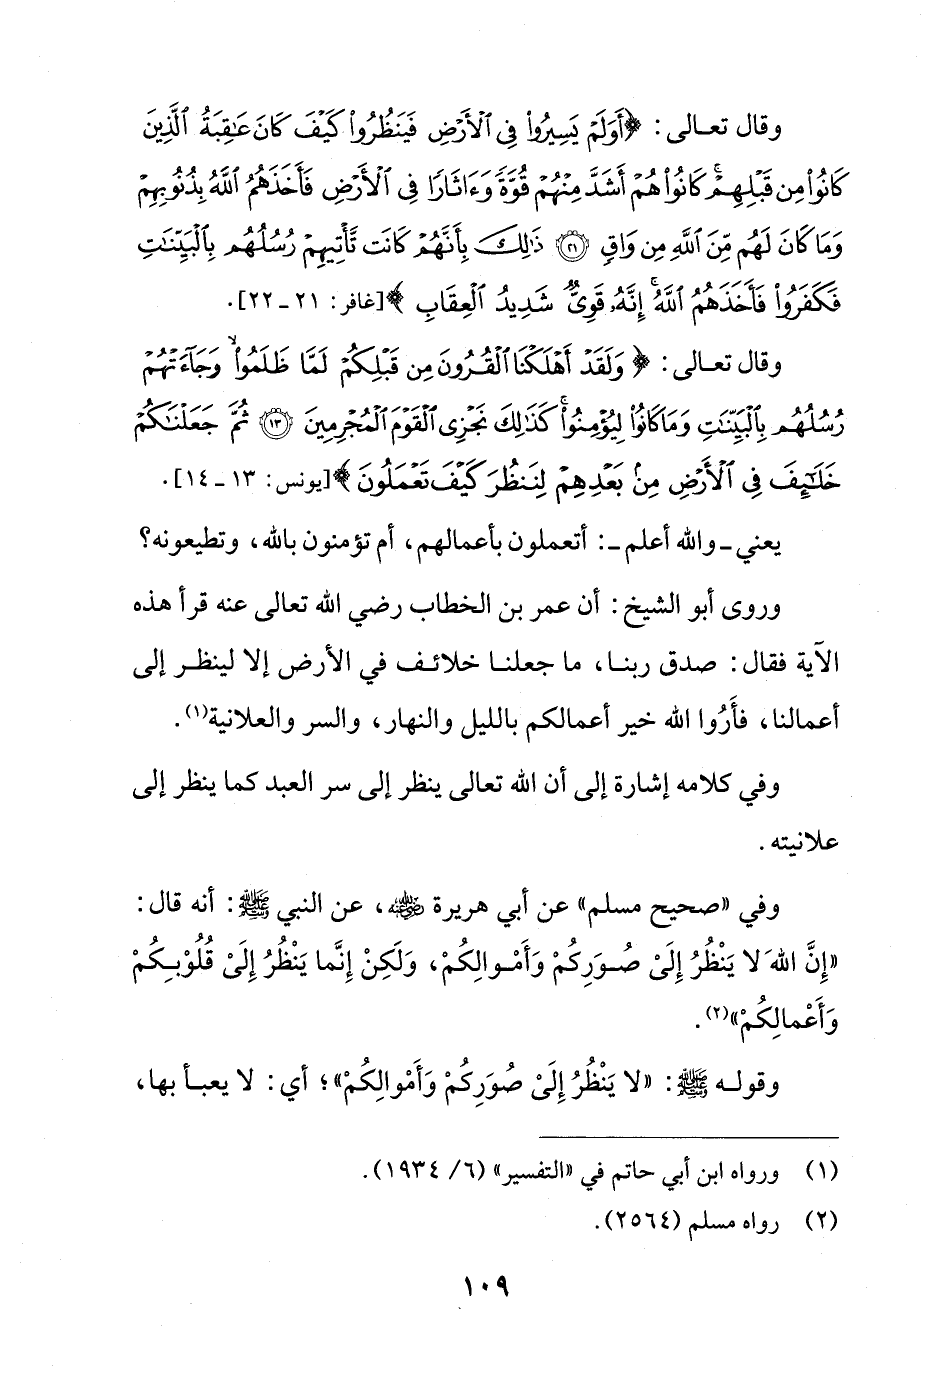 وقال تعالى: ﴿أَوَلَمْ يَسِيرُوا۟ فِى ٱلْأَرْضِ فَيَنظُرُوا۟ كَيْفَ كَانَ عَٰقِبَةُ ٱلَّذِينَ
كَانُوا۟ مِن قَبْلِهِمْ ۚ كَانُوا۟ هُمْ أَشَدَّ مِنْهُمْ قُوَّةً وَءَاثَارًا فِى ٱلْأَرْضِ فَأَخَذَهُمُ ٱللَّهُ بِذُنُوبِهِمْ
وَمَا كَانَ لَهُم مِّنَ ٱللَّهِ مِن وَاقٍ ٢١ ذَٰلِكَ بِأَنَّهُمْ كَانَت تَّأْتِيهِمْ رُسُلُهُم بِٱلْبَيِّنَٰتِ
فَكَفَرُوا۟ فَأَخَذَهُمُ ٱللَّهُ ۚ إِنَّهُۥ قَوِىٌّ شَدِيدُ ٱلْعِقَابِ﴾ [غافر: ٢١ ـ ٢٢].
وقال تعالى: ﴿وَلَقَدْ أَهْلَكْنَا ٱلْقُرُونَ مِن قَبْلِكُمْ لَمَّا ظَلَمُوا۟ ۙ وَجَآءَتْهُمْ
رُسُلُهُم بِٱلْبَيِّنَٰتِ وَمَا كَانُوا۟ لِيُؤْمِنُوا۟ ۚ كَذَٰلِكَ نَجْزِى ٱلْقَوْمَ ٱلْمُجْرِمِينَ ١٣ ثُمَّ جَعَلْنَٰكُمْ
خَلَٰٓئِفَ فِى ٱلْأَرْضِ مِنۢ بَعْدِهِمْ لِنَنظُرَ كَيْفَ تَعْمَلُونَ﴾ [يونس: ١٣ ـ ١٤].
يعني ـ والله أعلم ـ: أتعملون بأعمالهم، أم تؤمنون بالله، وتطيعونه؟
وروى أبو الشيخ: أن عمر بن الخطاب رضي الله تعالى عنه قرأ هذه
الآية فقال: صدق ربنا، ما جعلنا خلائف في الأرض إلا لينظر إلى
أعمالنا، فأَرُوا الله خير أعمالكم بالليل والنهار، والسر والعلانية(١).
وفي كلامه إشارة إلى أن الله تعالى ينظر إلى سر العبد كما ينظر إلى
علانيته.
وفي «صحيح مسلم» عن أبي هريرة رضي الله عنه، عن النبي ﷺ: أنه قال:
«إِنَّ اللهَ لا يَنْظُرُ إِلَىْ صُوَرِكُمْ وَأَمْوالِكُمْ، وَلَكِنْ إِنَّما يَنْظُرُ إِلَىْ قُلُوْبِكُمْ
وَأَعْمالِكُمْ»(٢).
وقوله ﷺ: «لا يَنْظُرُ إِلَىْ صُوَرِكُمْ وَأَمْوالِكُمْ»؛ أي: لا يعبأ بها،
(١) ورواه ابن أبي حاتم في «التفسير» (٦/ ١٩٣٤).
(٢) رواه مسلم (٢٥٦٤).
١٠٩